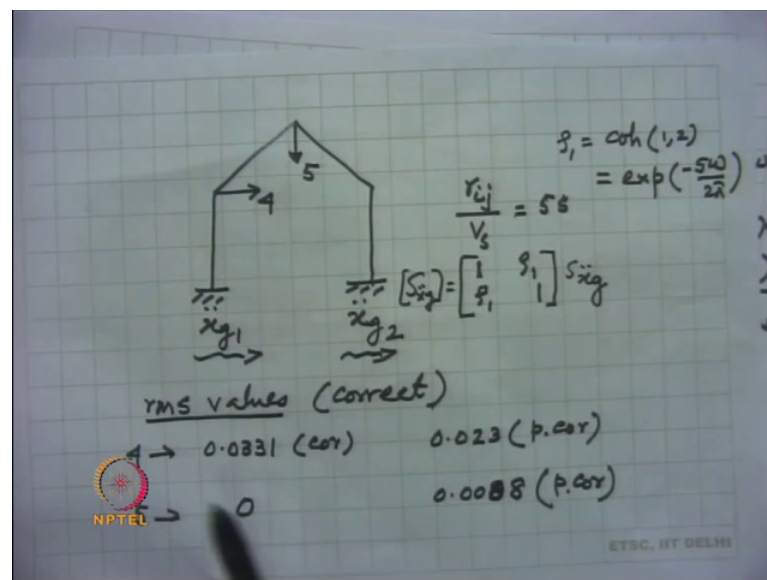 ρ₁ = coh(1,2)
= exp(-5ω/2π)
5
4
rᵢⱼ/Vₛ = 5s
[Sẍg] = [1 ρ₁; ρ₁ 1] Sẍg
ẍg₁
ẍg₂
rms values (correct)
4 → 0.0331 (cor) 0.023 (p.cor)
→ 0 0.0088 (p.cor)
NPTEL
ETSC, IIT DELHI